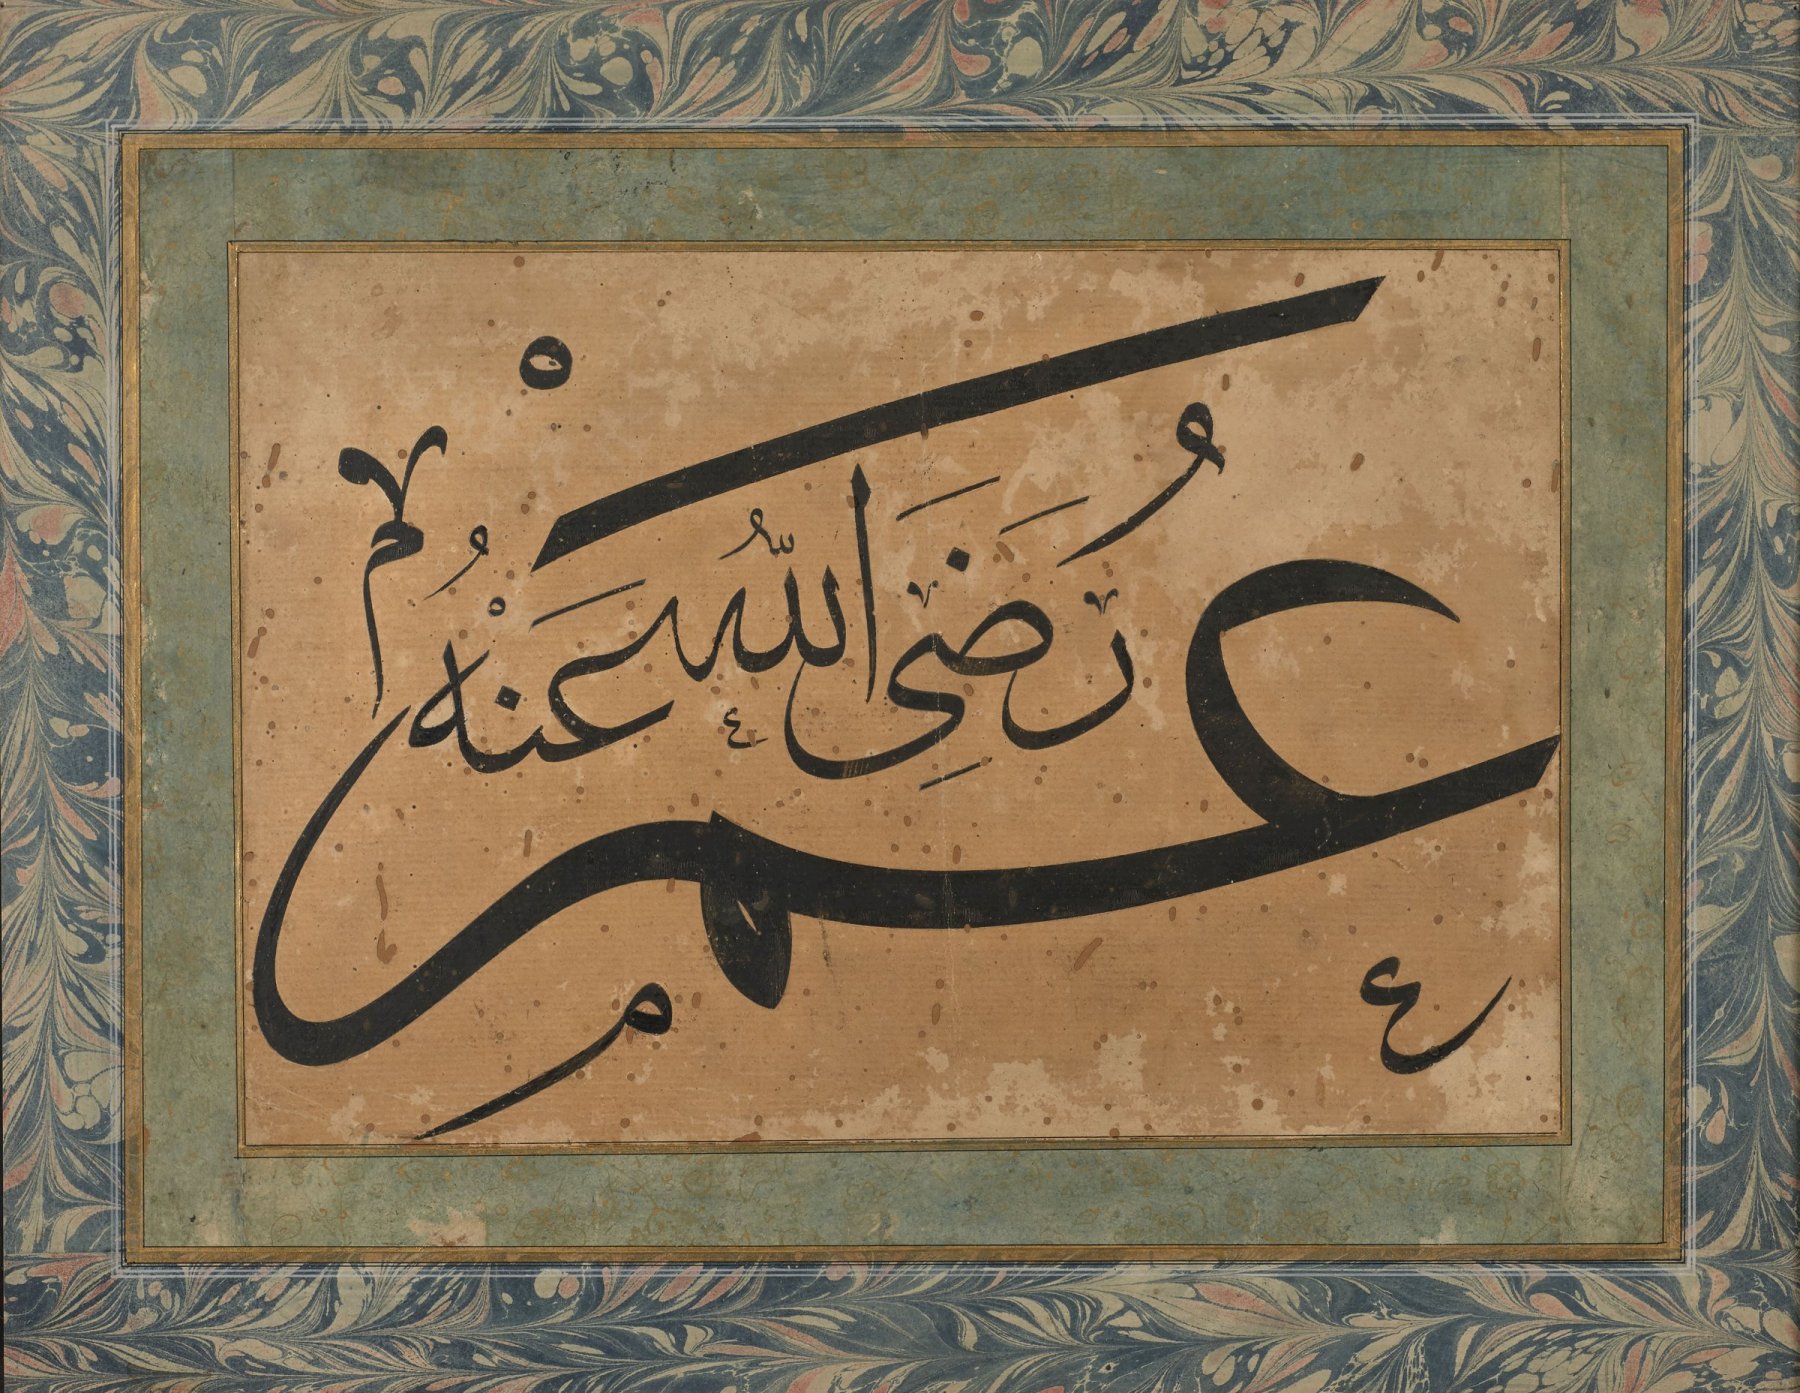 عُمَرْ
رَضِىَ اللّٰهُ عَنْهُ